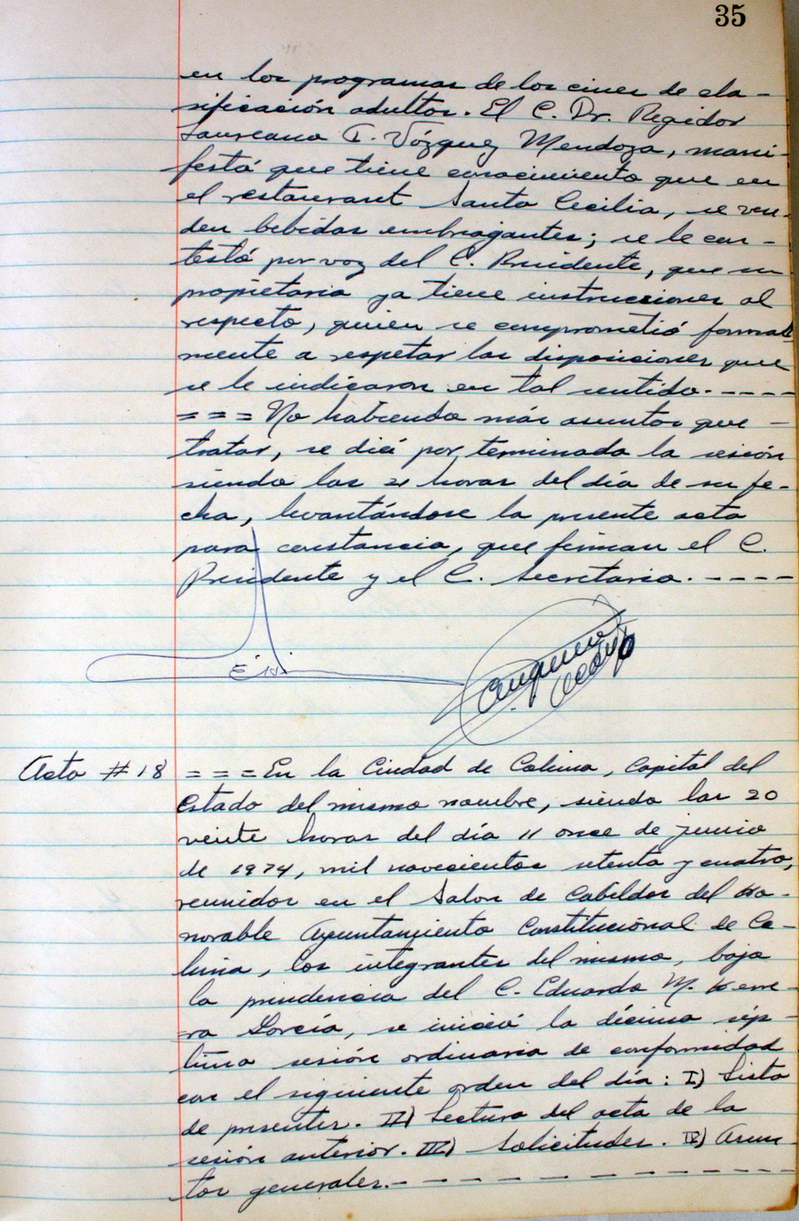 35
en los programas de los cines de cla-
sificación adultos. El C. Dr. Regidor
Laureano I. Vózquez Mendoza, mani-
festó que tiene conocimiento que en
el restaurant Santa Cecilia, se ven-
den bebidas embriagantes; se le con-
testó por voz del C. Presidente, que su
propietaria ya tiene instrucciones al
respecto, quien se comprometió formal
mente a respetar las disposiciones que
se le indicaron en tal sentido.----
=== No habiendo más asuntos que -
tratar, se dió por terminada la sesión
siendo las 21 horas del día de su fe-
cha, levantándose la presente acta
para constancia, que firman el C.
Presidente y el C. Secretario.----
Acta #18 === En la Ciudad de Colima, Capital del
Estado del mismo nombre, siendo las 20
veinte horas del día 11 once de junio
de 1974, mil novecientos setenta y cuatro,
reunidos en el Salon de Cabildos del Ho-
norable Ayuntamiento Constitucional de Co-
lima, los integrantes del mismo, bajo
la presidencia del C. Eduardo M. Herre-
ra García, se inició la décima sép-
tima sesión ordinaria de conformidad
con el siguiente orden del día: I) Lista
de presentes. II) Lectura del acta de la
sesión anterior. III) Solicitudes. IV) Asun-
tos generales.----------